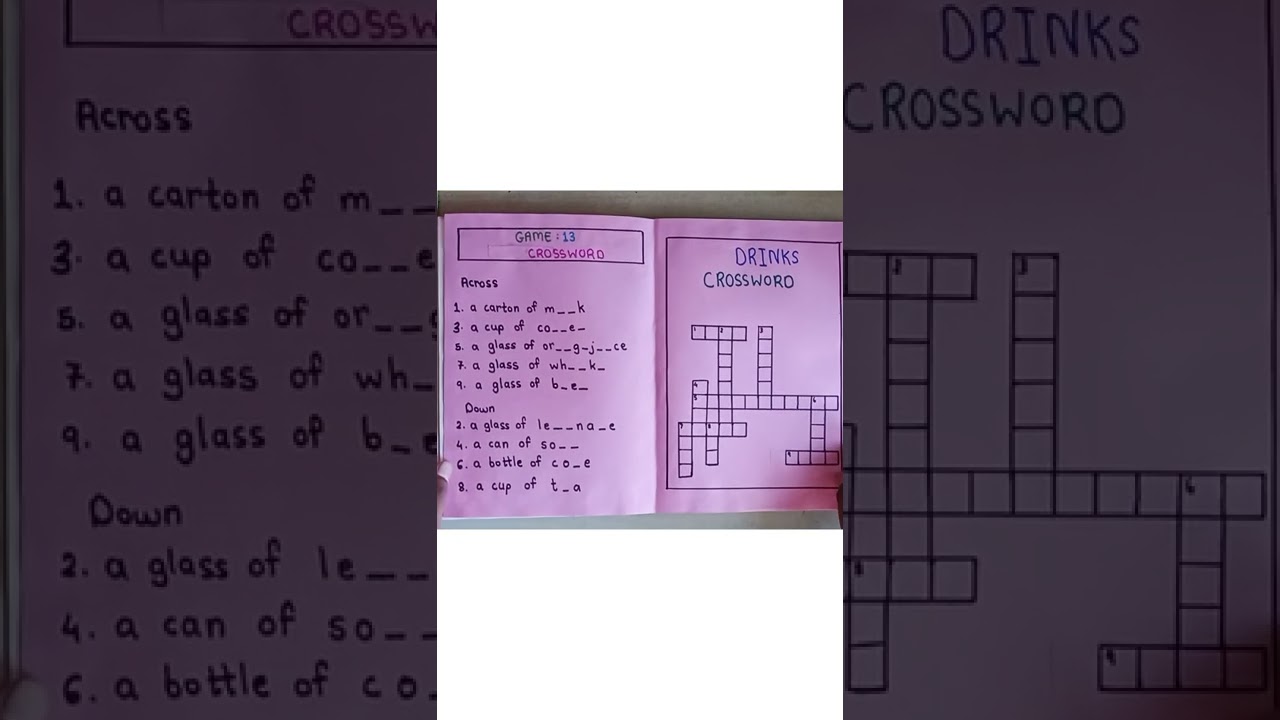 GAME : 13
CROSSWORD
Across
1. a carton of m__k
3. a cup of co__e-
5. a glass of or__g-j__ce
7. a glass of wh__k_
9. a glass of b_e_
Down
2. a glass of le__na_e
4. a can of so__
6. a bottle of co_e
8. a cup of t_a
DRINKS
CROSSWORD